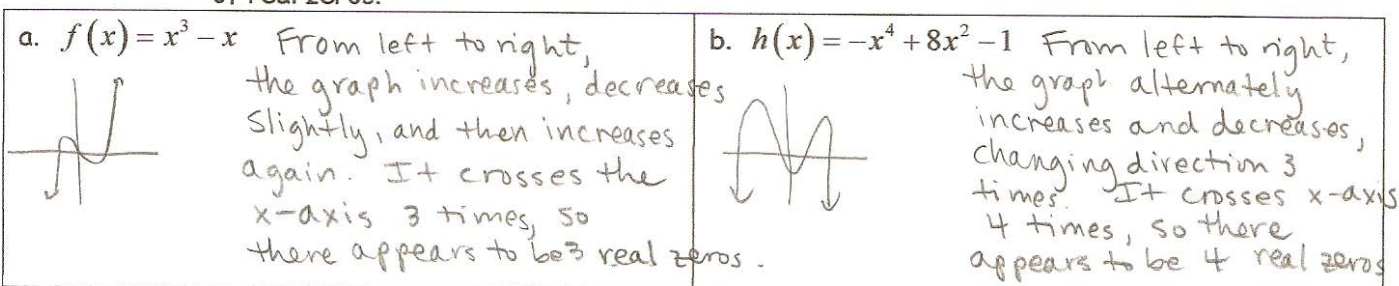 a. f(x) = x³ − x From left to right,
the graph increases, decreases
slightly, and then increases
again. It crosses the
x-axis 3 times, so
there appears to be 3 real zeros.
b. h(x) = −x⁴ + 8x² − 1 From left to right,
the graph alternately
increases and decreases,
changing direction 3
times. It crosses x-axis
4 times, so there
appears to be 4 real zeros